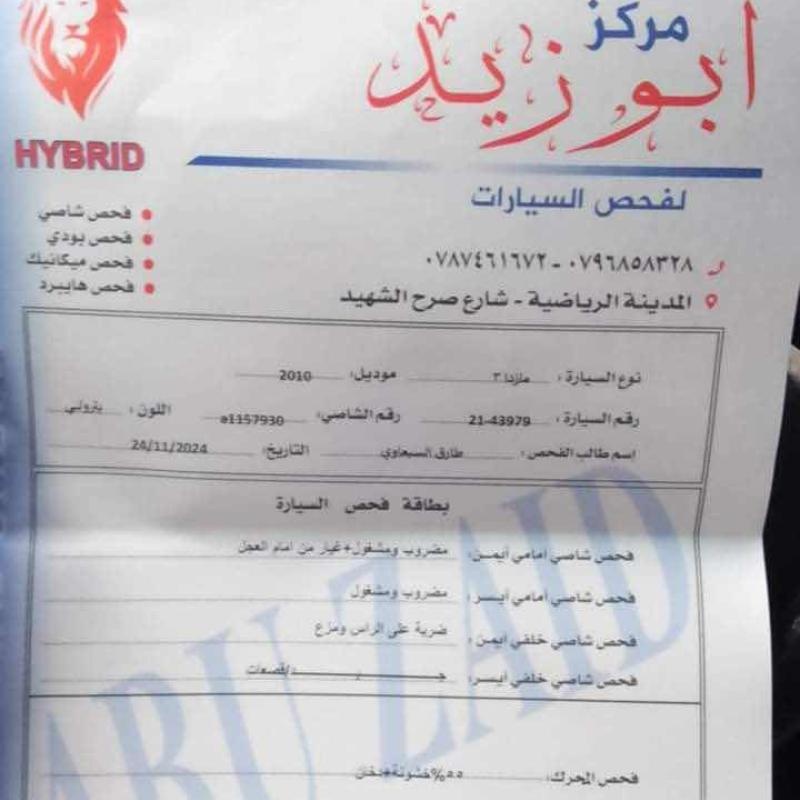 مركز
ابو زيد
HYBRID
لفحص السيارات
فحص شاصي
فحص بودي
فحص ميكانيك
فحص هايبرد
٠٧٩٦٨٥٨٣٢٨ - ٠٧٨٧٤٦١٦٧٢
المدينة الرياضية - شارع صرح الشهيد
نوع السيارة : مازدا ٣ موديل: 2010
رقم السيارة : 21-43979 رقم الشاصي: a1157930 اللون : بترولي
اسم طالب الفحص : طارق السبعاوي التاريخ: 24/11/2024
بطاقة فحص السيارة
فحص شاصي امامي ايمن: مضروب ومشغول+غيار من امام العجل
فحص شاصي امامي ايسر: مضروب ومشغول
فحص شاصي خلفي ايمن: ضربة على الراس ومزع
فحص شاصي خلفي ايسر: جـــــيـــــد/قصعات
فحص المحرك: ٥٥%خشونة+دخان
ABU ZAID